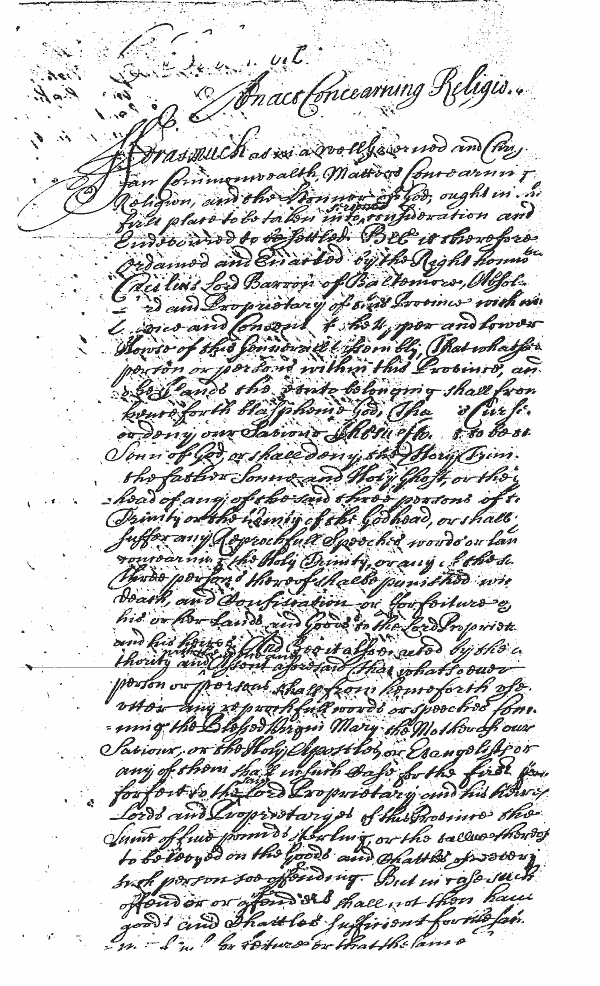 An act Concerning Religio
fforasmuch as in a well governed and
Commonwealth, Matters Concerning
Religion, and the Honnor of God, ought in
first place to be taken into serious consideration and
Endeavoured to be settled. Bee it therefore
ordained and Enacted by the Right
Cecilius Lord Barron of Baltemore,
and Proprietary of this Province with
and Consent the and lower
Howse of this Generall That whatsoe
person or persons within this Province, and
the Islands thereunto belonging shall from
henceforth blaspheme God, Curse
or deny our Saviour to be the
Sonn of God, or shall deny the Holy
the father Sonne and Holy Ghost, or the
head of any of the said three persons of the
Trinity or the unity of the Godhead, or shall
suffer any Reproachfull Speeches words or lan
concerning the Holy Trinity, or any of the
three persons thereof shalbe punished with
death, and Confiscation or forfeiture of
his or her lands and Goods to the Lord Propriet
and his heires. And bee it alsoe acted by the
thority and Assent aforesaid That whatsoever
person or persons shall from henceforth use
utter any reproachfull words or speeches
ning the Blessed Virgin Mary the Mother of our
Saviour, or the Holy Apostles, or Evangelists or
any of them shall in such Case for the first
forfeit to the said Lord Proprietary and his heires
Lords and Proprietaryes of this Province the
Summe of five pounds sterling, or the vallue thereof
to be levyed on the Goods and Chattles of every
such person soe offending But in case such
offender or offenders shall not then have
goods and Chattles sufficient for
or that the same